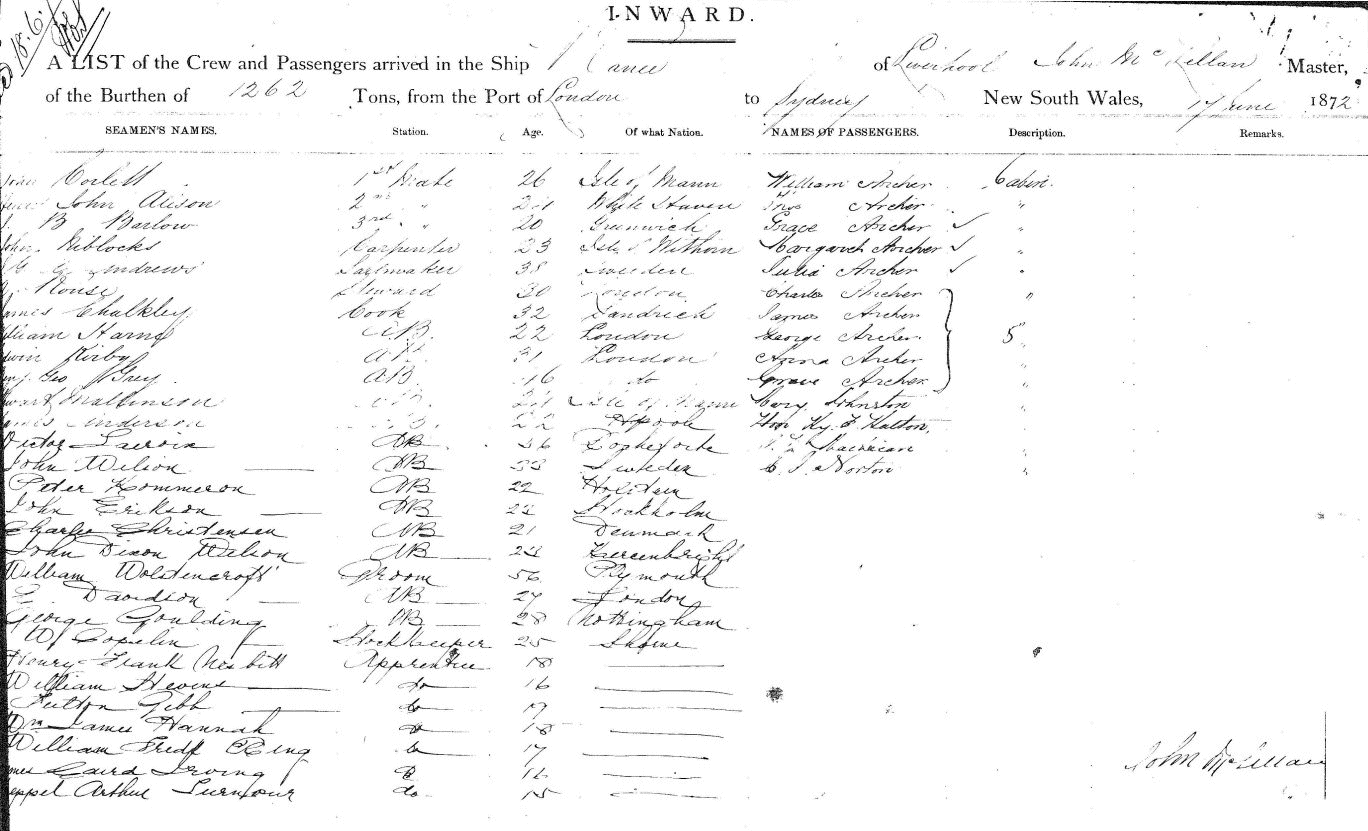 18.6
INWARD.
A LIST of the Crew and Passengers arrived in the Ship of Liverpool John McLellan Master,
of the Burthen of 1262 Tons, from the Port of London to Sydney New South Wales, 17 June 1872
SEAMEN'S NAMES. Station. Age. Of what Nation. NAMES OF PASSENGERS. Description. Remarks.
Corlett 1st Mate 26 Isle of Mann William Archer Cabin.
John Alison 2nd " White Haven Thos Archer "
B Barlow 3rd " 20 Greenwich Grace Archer ✓ "
Niblocks Carpenter 23 Isle of Withorn Margaret Archer ✓ "
Andrews Sailmaker 38 Sweden Julia Archer ✓ "
Rouse Steward 30 London Charles Archer "
James Chalkley Cook 32 Sandrich James Archer
William AB. 22 London George Archer 5 "
Kirby AB. 31 London Anna Archer "
Geo Grey AB 16 do Grace Archer "
Mallinson AB. Isle of Mann Mary Johnston "
Anderson 22 Hpool Hon Hy. F Kelton, "
Victor Lacroix AB 36 "
John Wilson AB 33 Sweden C. J. Norton "
Peter Kommeron AB 22 Holstein
John Erikson AB Stockholm
Charles Christensen AB 21 Denmark
John Dixon Wilson AB
William Wolstencroft Groom 56 Plymouth
Davidson AB 27 London
George Goulding AB 28 Nottingham
W Copelin Storekeeper 25
Henry Frank Nesbitt Apprentice 18
William Hevens do 16
Fulton Gibb do 17
Wm James Hannah do 18
William Fredk Ring do 17
James Laird Irving do 16
Keppel Arthur Turnour do 15
John McLellan